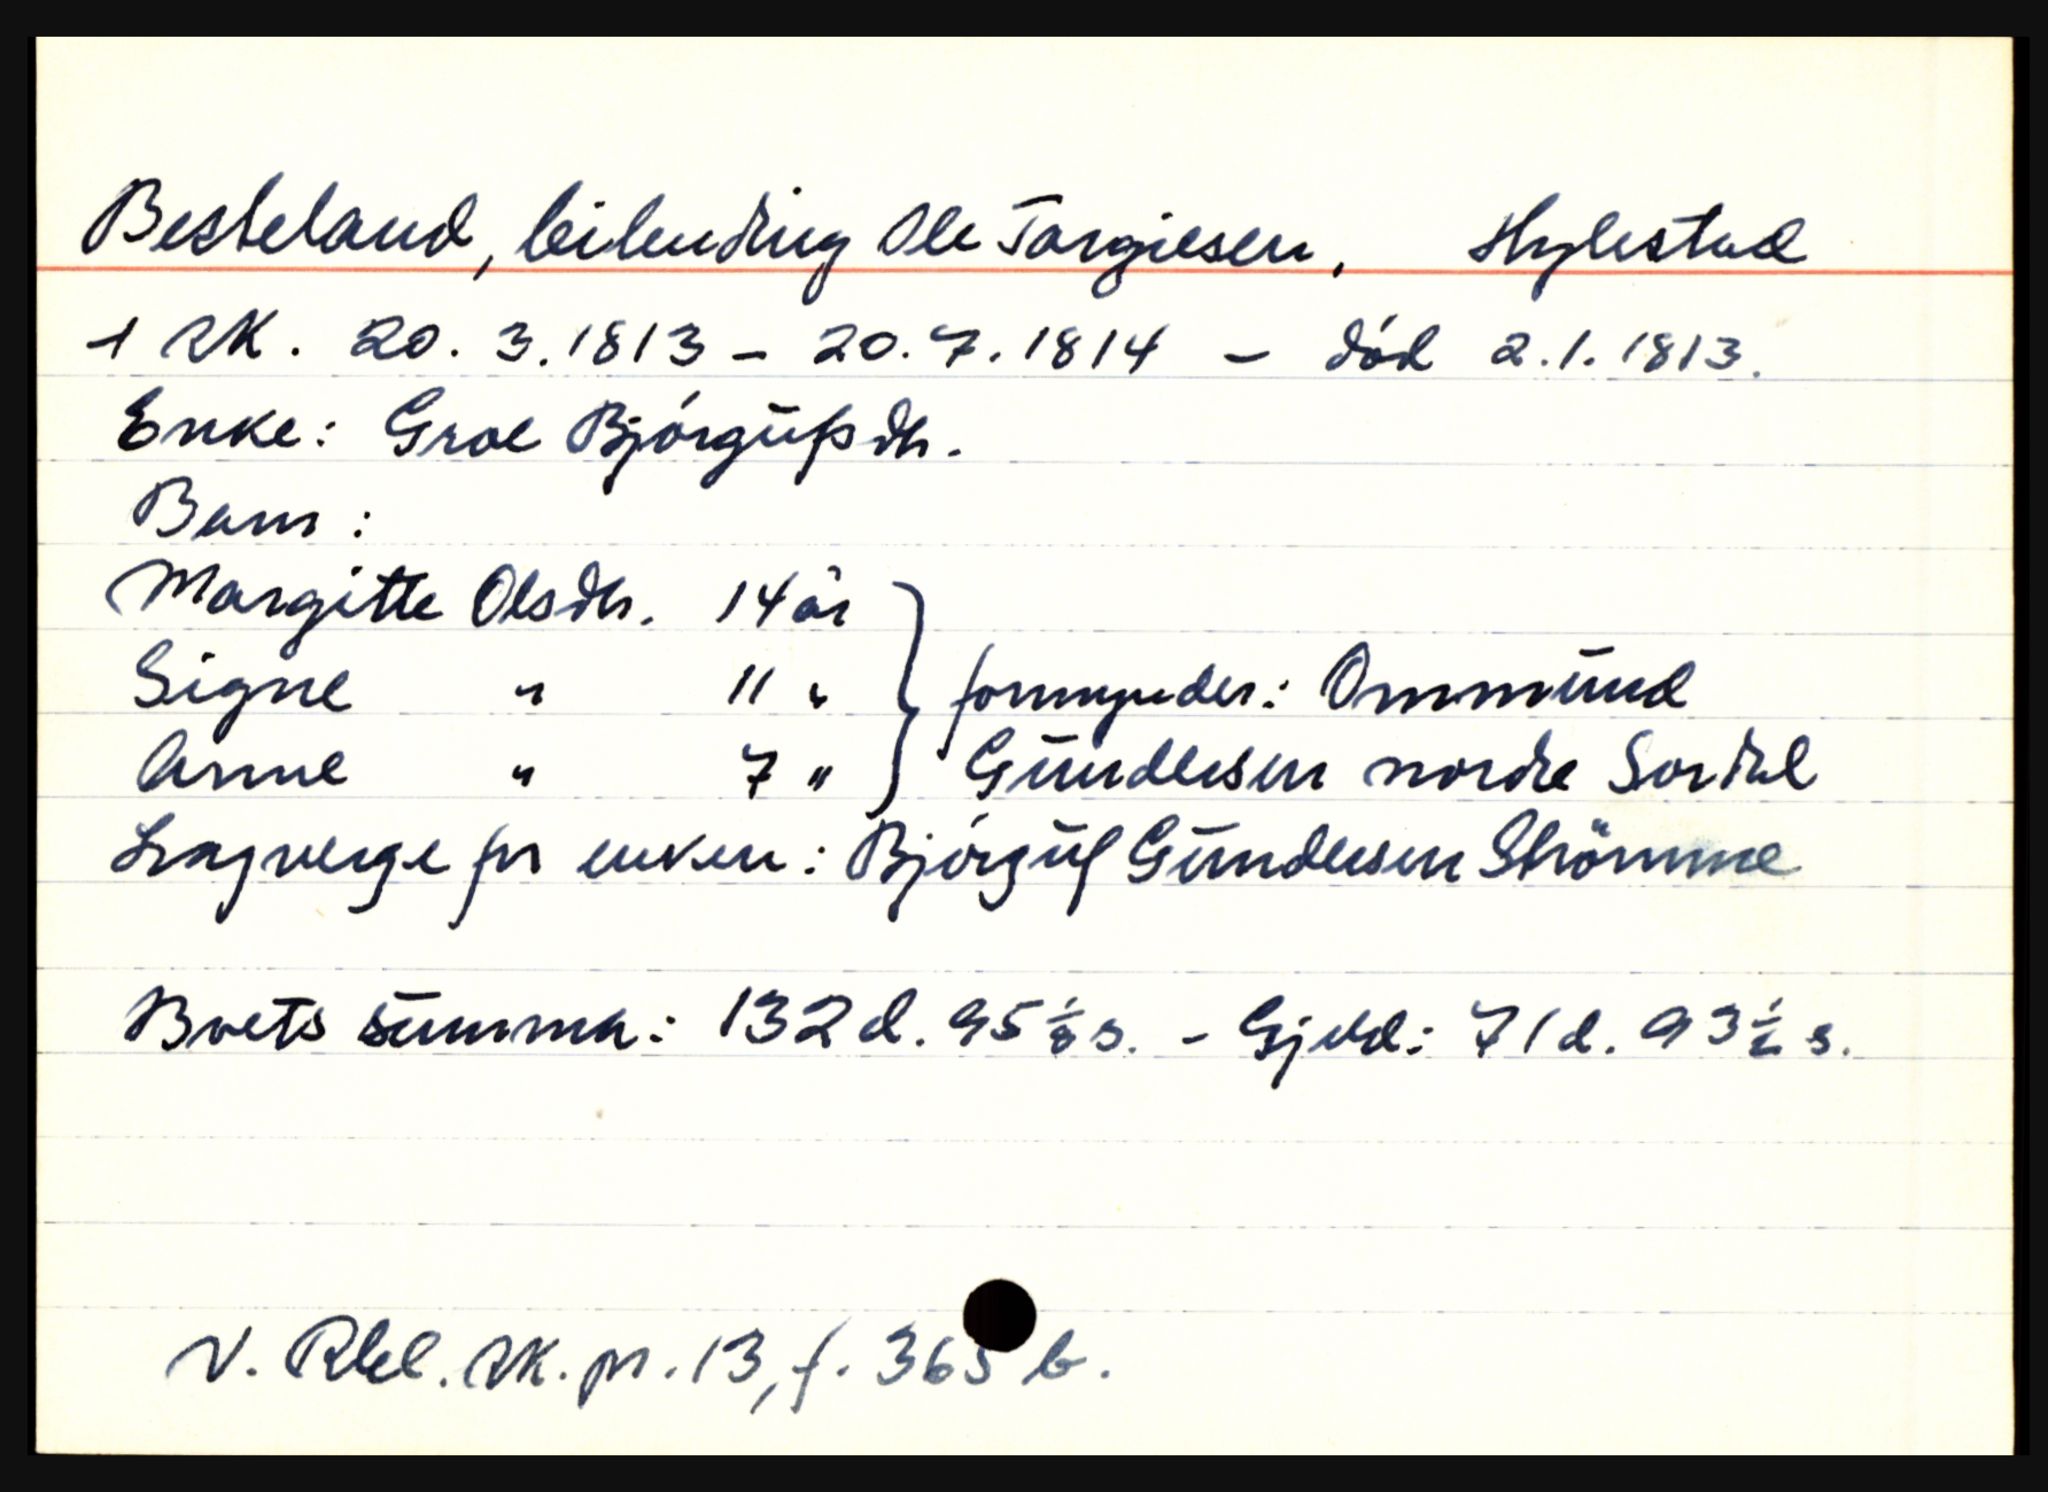 Besteland, leilending Ole Targiesen. Hylestad
1 SK. 20. 3. 1813 - 20. 7. 1814 - död 2. 1. 1813.
Enke: Groe Bjórgufsdtr.
Barn:
Margitte Olsdtr. 14 år
Signe " 11 " formynder: Ommund
Anne " 7 " Gundersen nordre Sordal
Lagverge for enken: Bjórguf Gundersen Strömme
Boets summa: 132 d. 95 ½ s. - Gjeld: 71 d. 93 ½ s.
V. Rbl. SK. pr. 13, f. 365 b.